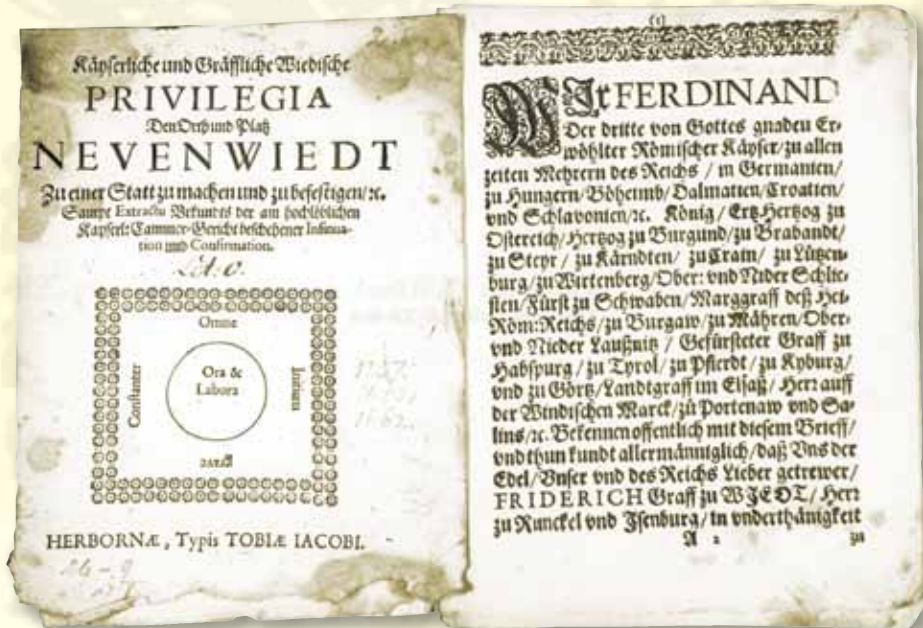 Käyserliche und Gräffliche Wiedische
PRIVILEGIA
Den Orth und Platz
NEVENWIEDT
Zu einer Statt zu machen und zu befestigen/ꝛc.
Sampt Extractu Vrkuntes der am hochlöblichen
Kayserl: Cammer-Gericht beschehener Insinua-
tion und Confirmation.
Lit. O.
Omne
Constanter
Ora &
Labora
Initium
HERBORNÆ, Typis TOBIÆ IACOBI.
(1)
WIr FERDINAND
Der dritte von Gottes gnaden Er-
wöhlter Römischer Käyser/zu allen
zeiten Mehrern des Reichs / in Germanien/
zu Hungern/Böheimb/Dalmatien/Croatien/
vnd Schlavonien/ꝛc. König/ Ertz-Hertzog zu
Ostereich/Hertzog zu Burgund/zu Brabandt/
zu Steyr / zu Kärndten/ zu Crain/ zu Lützen-
burg/zu Wirtenberg/Ober: vnd Nider Schle-
sien/Fürst zu Schwaben/Marggraff deß Hei-
Röm:Reichs/zu Burgaw/zu Mähren/Ober-
vnd Nieder Laußnitz / Gefürsteter Graff zu
Habspurg / zu Tyrol/ zu Pfierdt / zu Kyburg/
vnd zu Görtz/Landtgraff im Elsaß/ Herr auff
der Windischen Marck/zu Portenaw vnd Sa-
lins/ꝛc. Bekennen offentlich mit diesem Brieff/
vnd thun kundt allermänniglich/daß Vns der
Edel/Vnser vnd des Reichs Lieber getrewer/
FRIDERICH Graff zu WIEDT/ Herr
zu Runckel vnd Isenburg/in vnderthänigkeit
A 2 zu